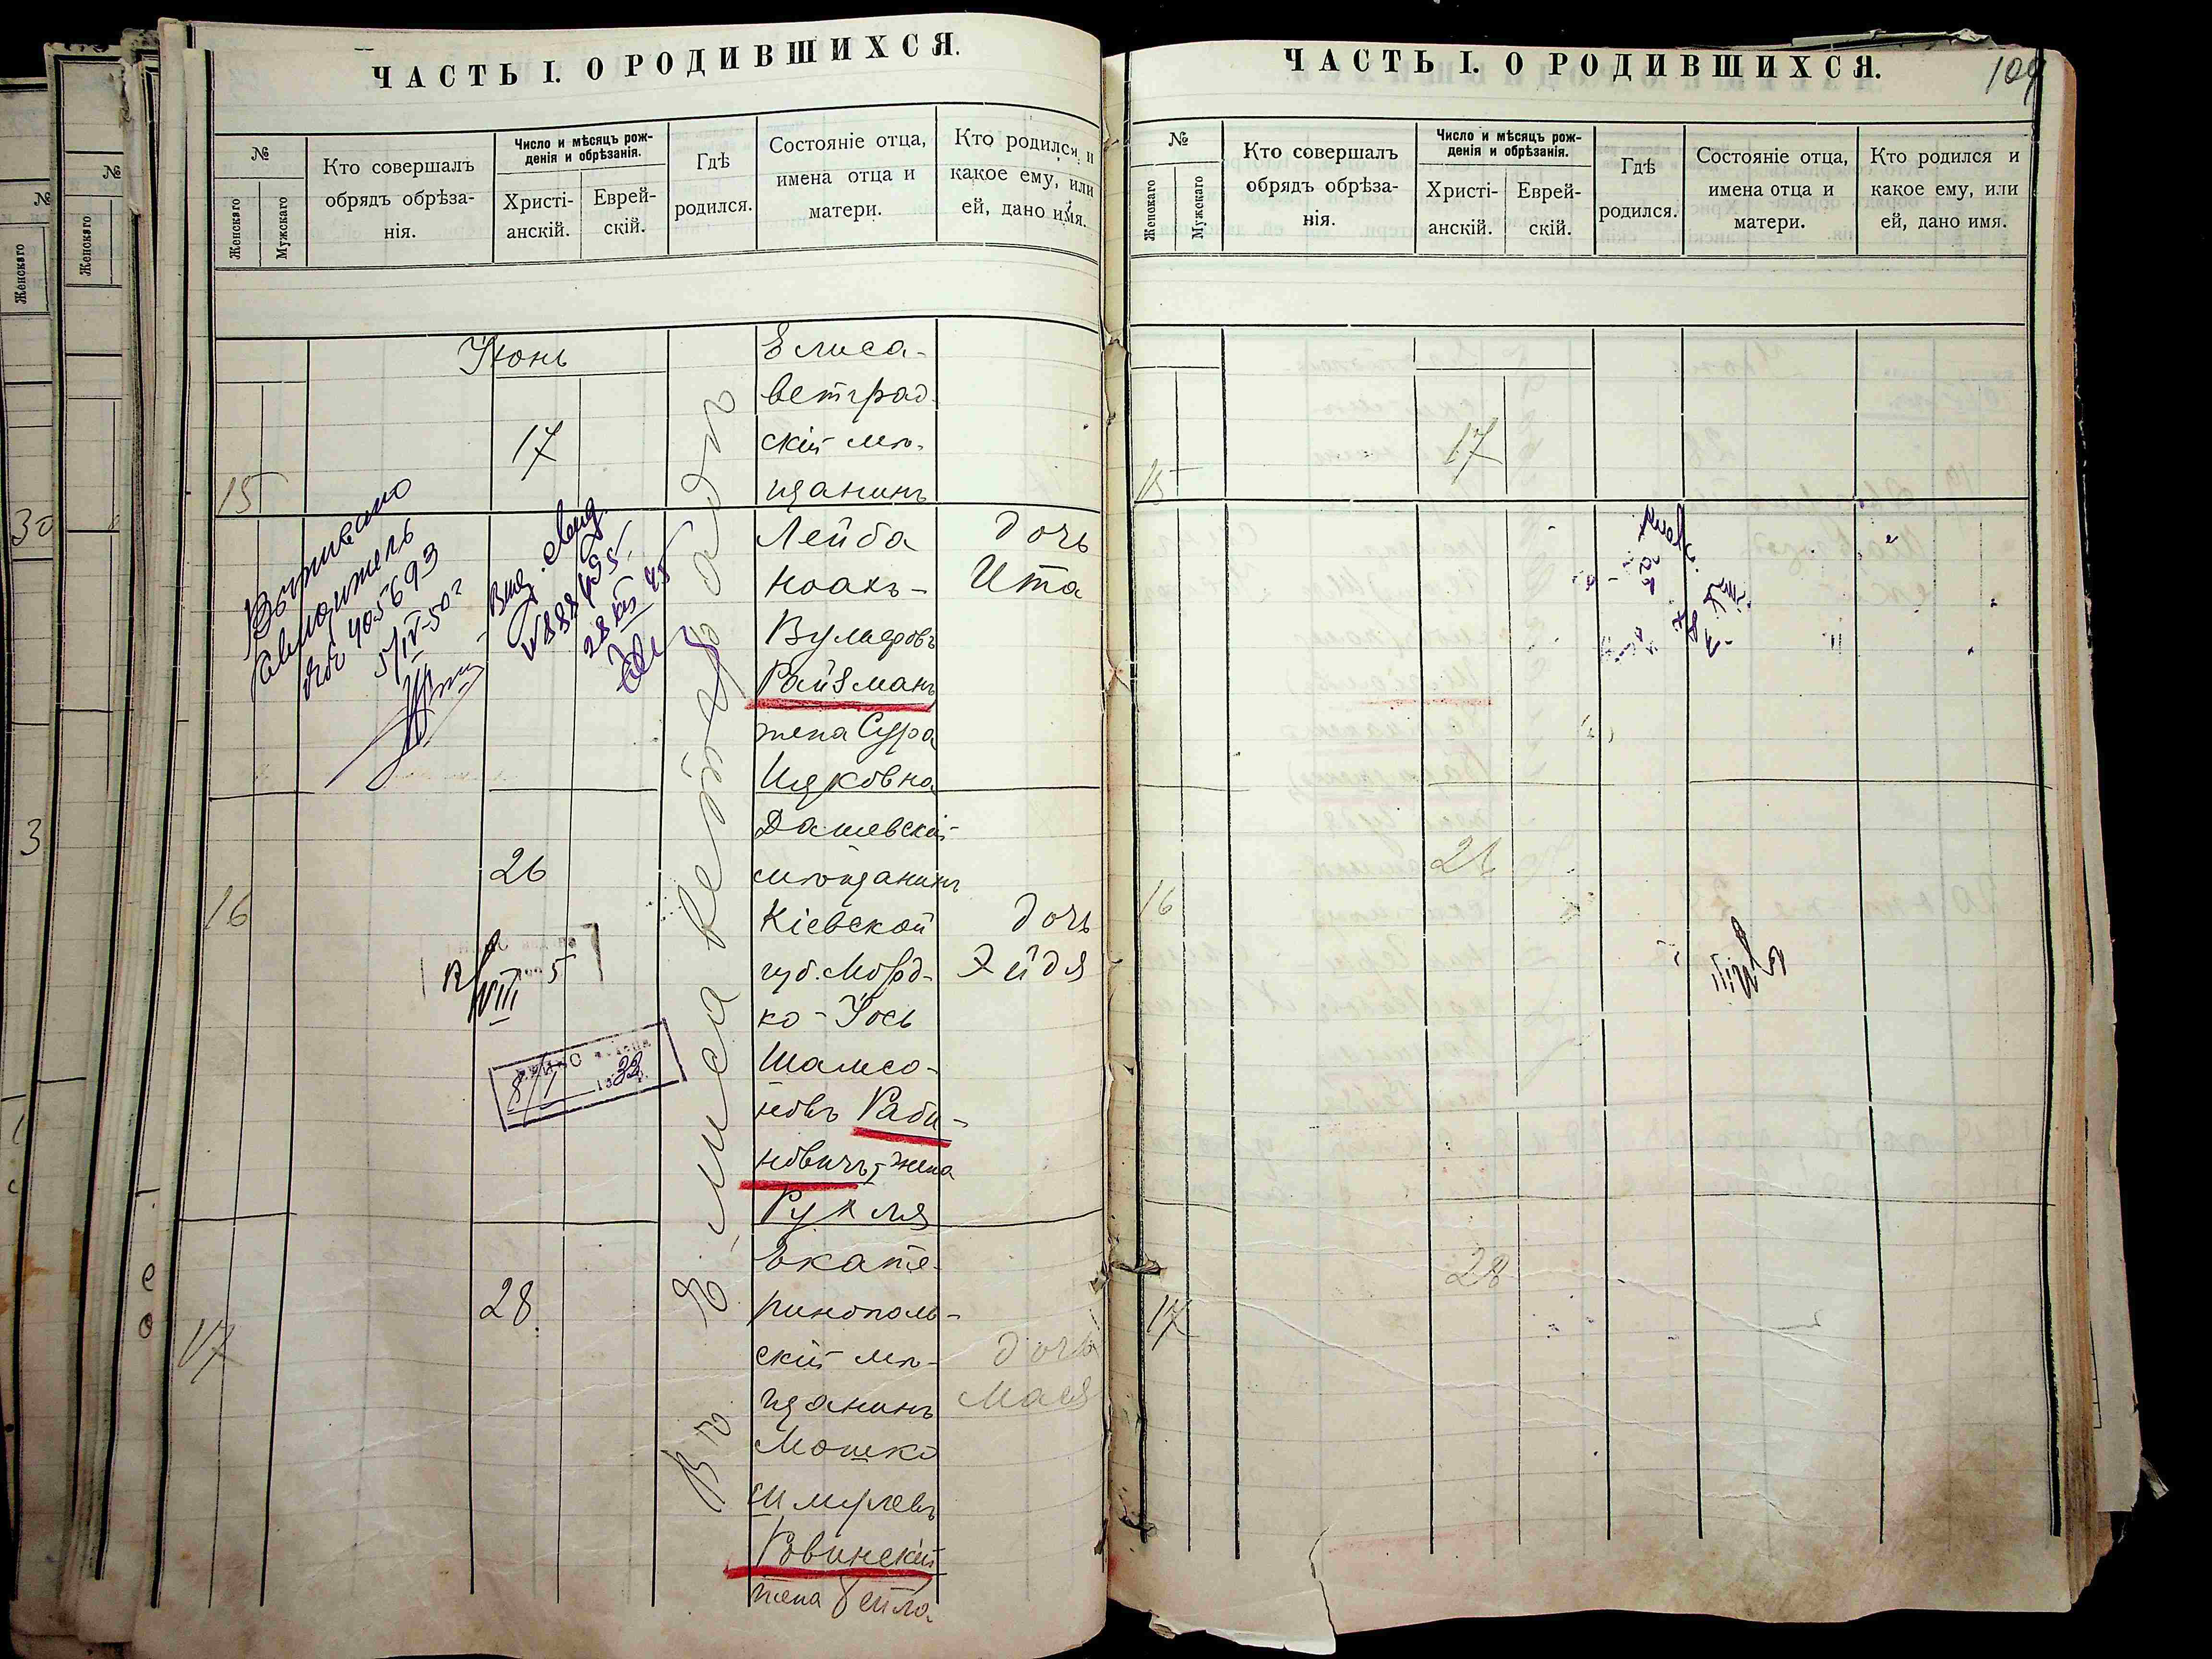 ЧАСТЬ I. О РОДИВШИХСЯ.
№
Женскаго
Мужскаго
Кто совершалъ
обрядъ обрѣза-
нія.
Число и мѣсяцъ рож-
денія и обрѣзанія.
Христі-
анскій.
Еврей-
скій.
Гдѣ
родился.
Состояніе отца,
имена отца и
матери.
Кто родился и
какое ему, или
ей, дано имя.
Іюнь
15
17
Въ г. Елисаветградѣ
Елиса-
ветград
скій мѣ-
щанинъ
Лейба
Ноахъ-
Вульфовъ
Райзманъ
жена Сура
Ицковна
дочь
Ита
405693
5/IV-50 г
28
45
16
26
Дашевскій
мѣщанинъ
Кіевской
губ. Морд-
ко-Іось
Шамсо-
новъ Раби-
новичъ, жена
Рухля
дочь
Эйдя
VIII 5
8/I 1932
17
28
Екате-
ринополь-
скій мѣ-
щанинъ
Мошко
Шмулевъ
Ровинскій
жена Бейла
дочь
Мася
ЧАСТЬ I. О РОДИВШИХСЯ.
109
№
Женскаго
Мужскаго
Кто совершалъ
обрядъ обрѣза-
нія.
Число и мѣсяцъ рож-
денія и обрѣзанія.
Христі-
анскій.
Еврей-
скій.
Гдѣ
родился.
Состояніе отца,
имена отца и
матери.
Кто родился и
какое ему, или
ей, дано имя.
15
17
16
26
17
28
№
Женскаго
№
Женскаго
30
3